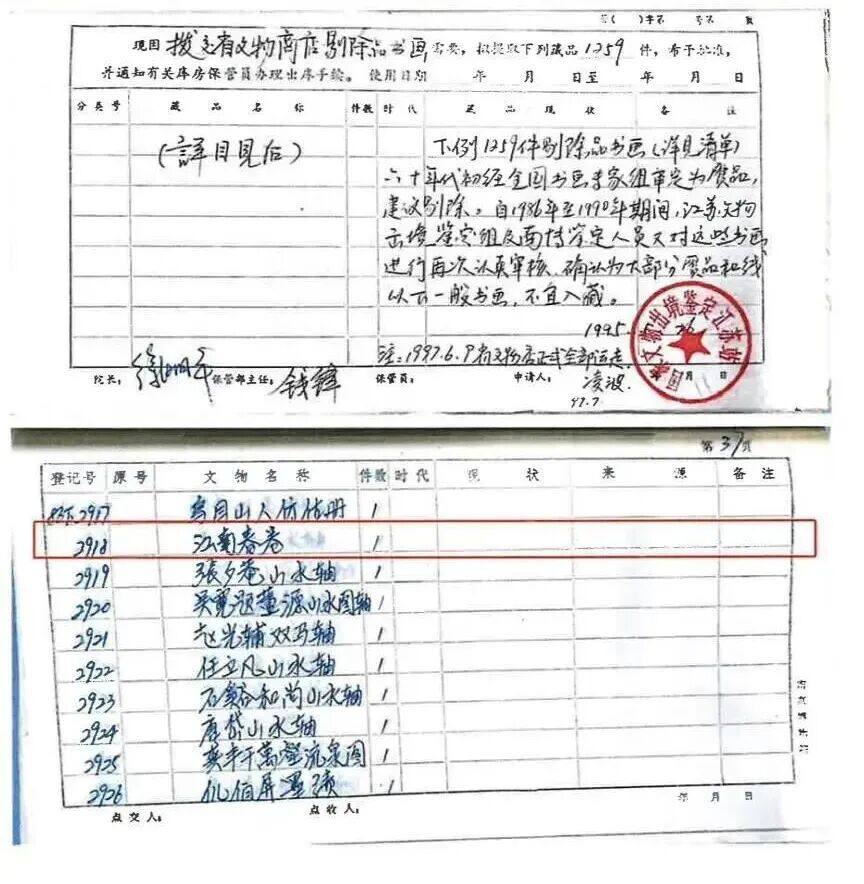 第( )字第 号第 页
现因 拨交省文物商店剔除品书画 需要,拟提取下列藏品 1259 件,希予批准,
并通知有关库房保管员办理出库手续。 使用日期 年 月 日至 年 月 日
分类号 藏品名称 件数 时代 藏品现状 备注
(詳目見后)
下列1259件剔除品书画(详见清单)
六十年代初经全国书画专家组审定为赝品,
建议剔除。自1986年至1990年期间,江苏文物
出境鉴定组及南博鉴定人员又对这些书画
进行再次认真审核,确认为大部分赝品和线
以下一般书画,不宜入藏。
1995
注:1997.6.9 省文物店正式全部运走
院长: 保管部主任: 钱锋 保管员: 申请人: 凌波 月 日
97.7.
文物出境鉴定江苏站
第 37 页
登记号 原号 文物名称 件数 时代 现状 来源 备注
2917 烏目山人仿古册 1
2918 江南春卷 1
2919 張夕庵山水轴 1
2920 吴寬题董源山水图轴 1
2921 赵光辅双马轴 1
2922 任立凡山水轴 1
2923 石谿和尚山水轴 1
2924 唐岱山水轴 1
2925 奚丰千萬壑流泉图 1
2926 1
点交人: 点收人: 年 月 日